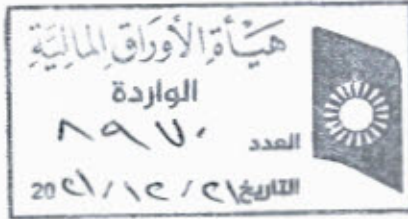 هيأة الأوراق المالية
الواردة
العدد ٨٩٧٠
التاريخ ٢١ / ١٢ / ٢٠٢١